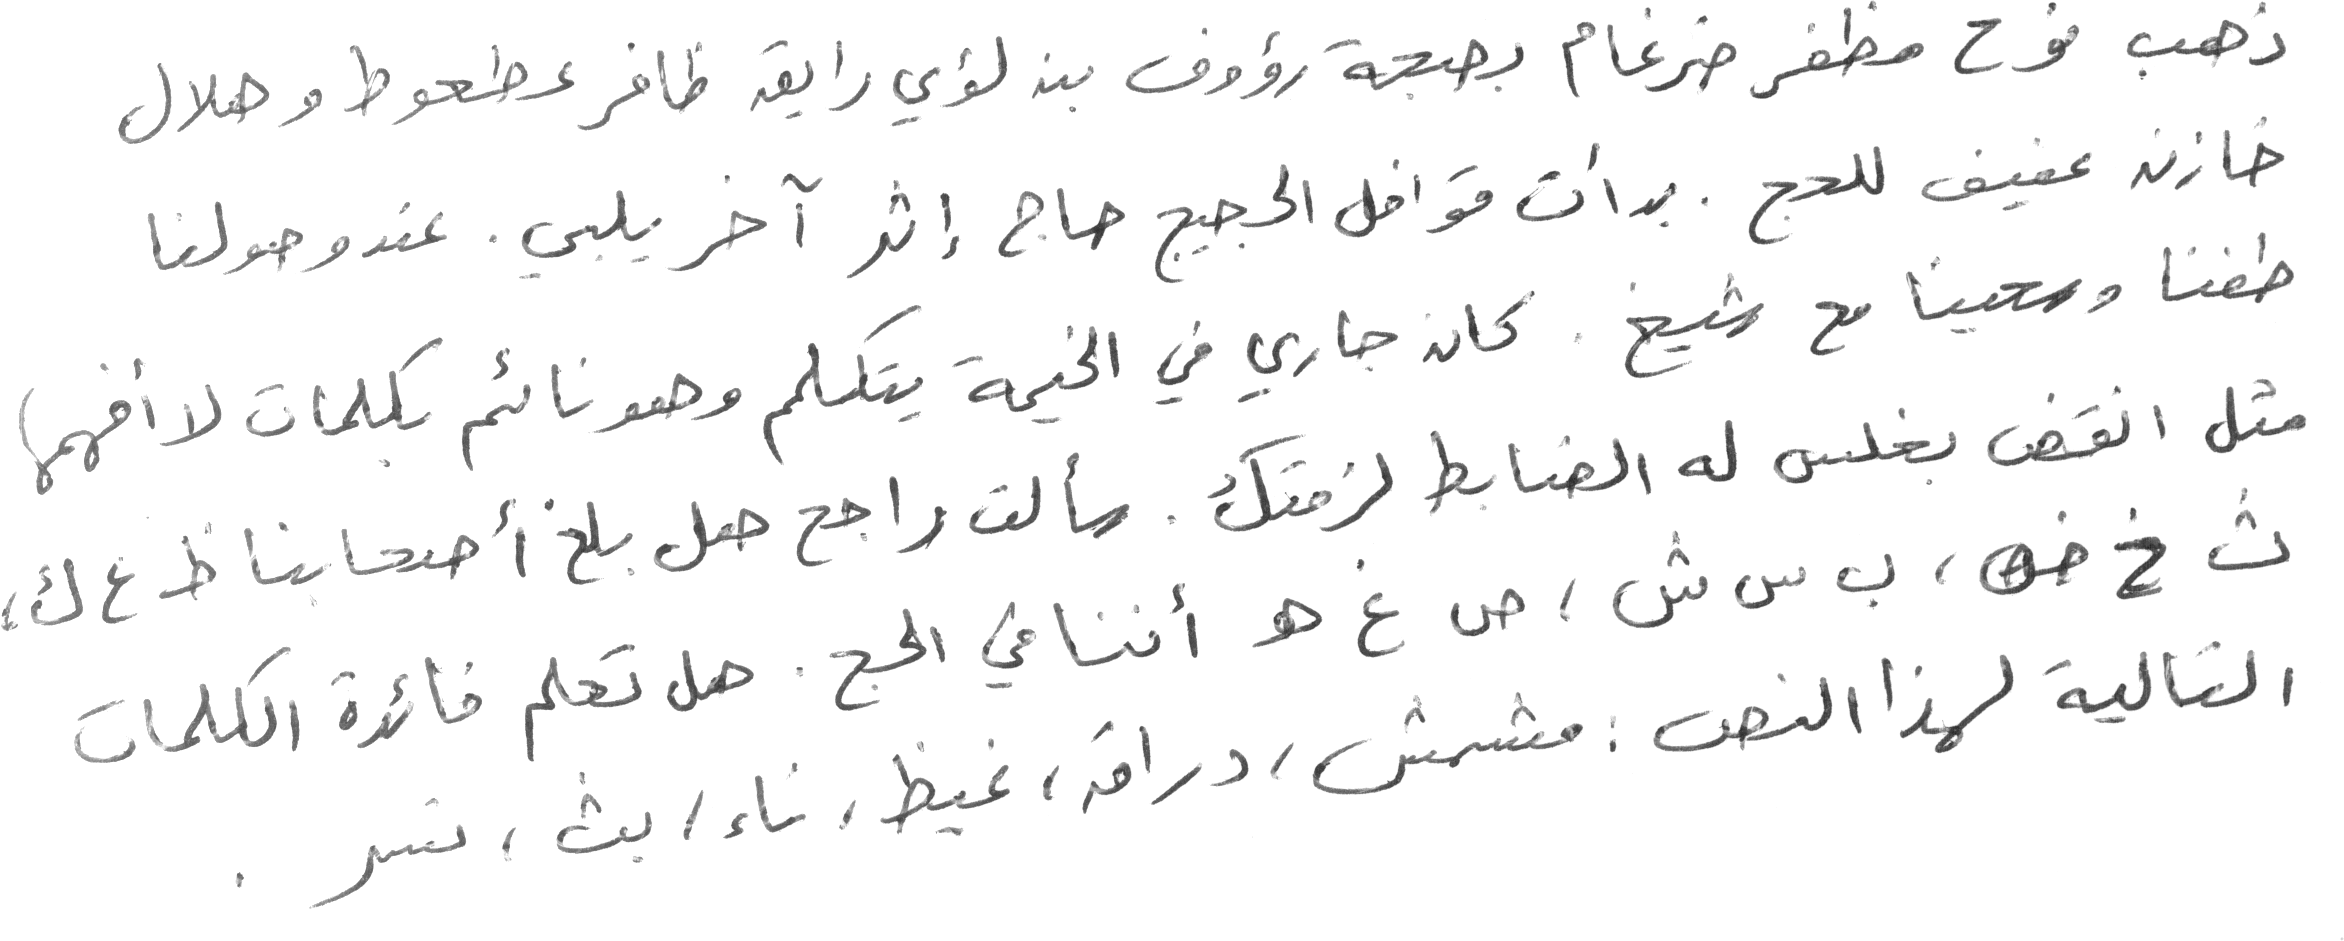 ذهب نوح مظفر ضرغام بصحبة رؤوف بن لؤي رايق ظافر عطعوط وهلال
خازن عفيف للحج . بدأت قوافل الحجيج حاج إثر آخر يلبي . عند وصولنا
طفنا وسعينا مع شيخ . كان جاري في الخيمة يتكلم وهو نائم بكلمات لا أفهمها
مثل انقض بغلس له الضابط لزمتك . سألت راجح هل بلغ أصحابنا ظ ع ك ،
ث خ ض ، ب س ش ، ص غ هـ أننا في الحج . هل تعلم فائدة الكلمات
التالية لهذا النص : مشمش ، دراق ، غيظ ، ناء ، بث ، نسر .